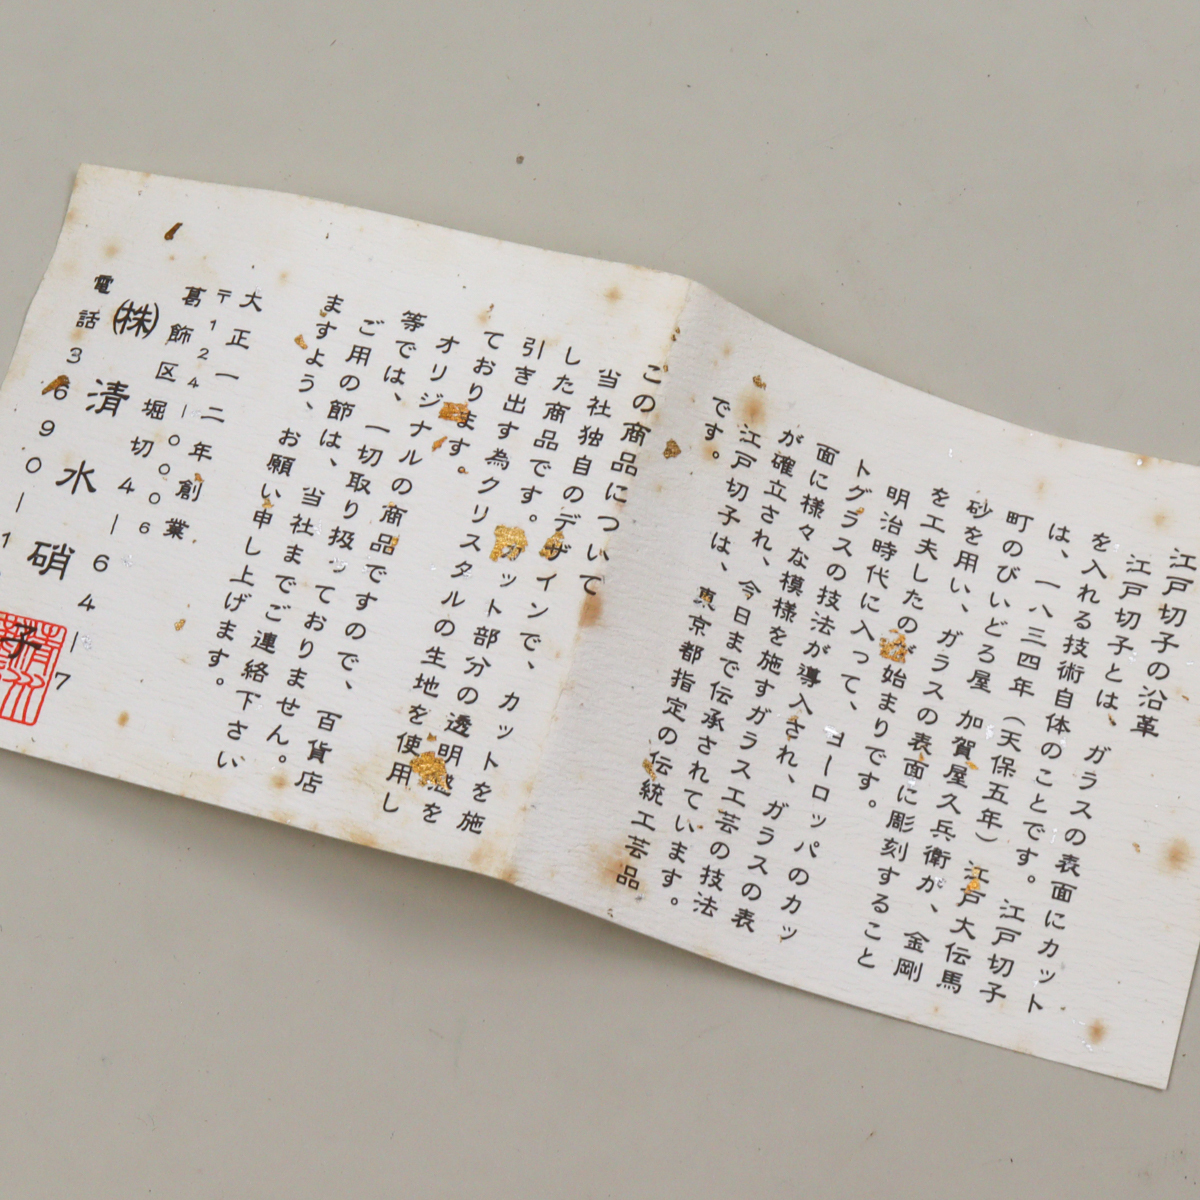 江戸切子の沿革
江戸切子とは、ガラスの表面にカット
を入れる技術自体のことです。江戸切子
は、一八三四年（天保五年）江戸大伝馬
町のびいどろ屋 加賀屋久兵衛が、金剛
砂を用い、ガラスの表面に彫刻すること
を工夫したのが始まりです。
明治時代に入って、ヨーロッパのカッ
トグラスの技法が導入され、ガラスの表
面に様々な模様を施すガラス工芸の技法
が確立され、今日まで伝承されています。
江戸切子は、東京都指定の伝統工芸品
です。
この商品について
当社独自のデザインで、カットを施
した商品です。カット部分の透明感を
引き出す為クリスタルの生地を使用し
ております。
オリジナルの商品ですので、百貨店
等では、一切取り扱っておりません。
ご用の節は、当社までご連絡下さい
ますよう、お願い申し上げます。
大正一二年創業
〒124-0006
葛飾区堀切4-64-7
㈱清水硝子
電話3690-1